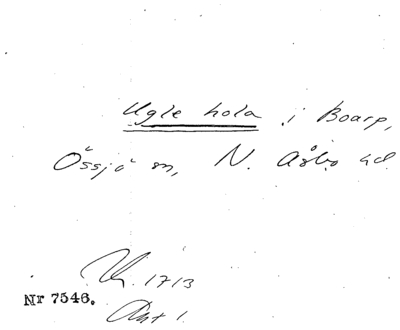 Ugle hola i Boarp,
Össjö sn, N. Åsbo hd.
1713
Nr 7546.
Akt 1.